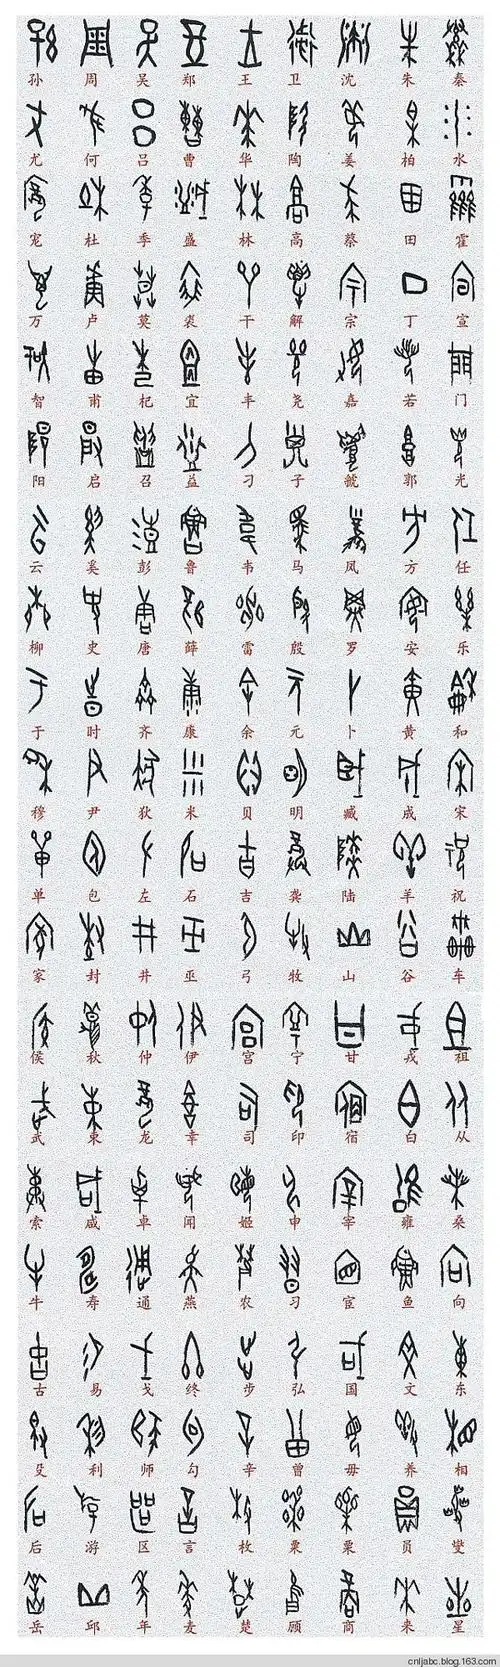 孙 周 吴 郑 王 卫 沈 朱 秦
尤 何 吕 曹 华 陶 姜 柏 水
宠 杜 季 盛 林 高 蔡 田 霍
万 卢 莫 裘 干 解 宗 丁 宣
智 甫 杞 宜 丰 尧 嘉 若 门
阳 启 召 益 刁 子 虢 郭 光
云 奚 彭 鲁 韦 马 凤 方 任
柳 史 唐 薛 雷 殷 罗 安 乐
于 时 齐 康 余 元 卜 黄 和
穆 尹 狄 米 贝 明 臧 成 宋
单 包 左 石 吉 龚 陆 羊 祝
家 封 井 巫 弓 牧 山 谷 车
侯 秋 仲 伊 宫 宁 甘 戎 祖
武 束 龙 幸 司 印 宿 白 从
索 咸 卓 闻 姬 申 宰 雍 桑
牛 寿 通 燕 农 习 宦 鱼 向
古 易 戈 终 步 弘 国 文 东
殳 利 师 勾 辛 曾 毋 养 相
后 游 区 言 枚 粟 栗 员 燮
岳 邱 年 麦 楚 顾 商 来 星
cnljabc.blog.163.com